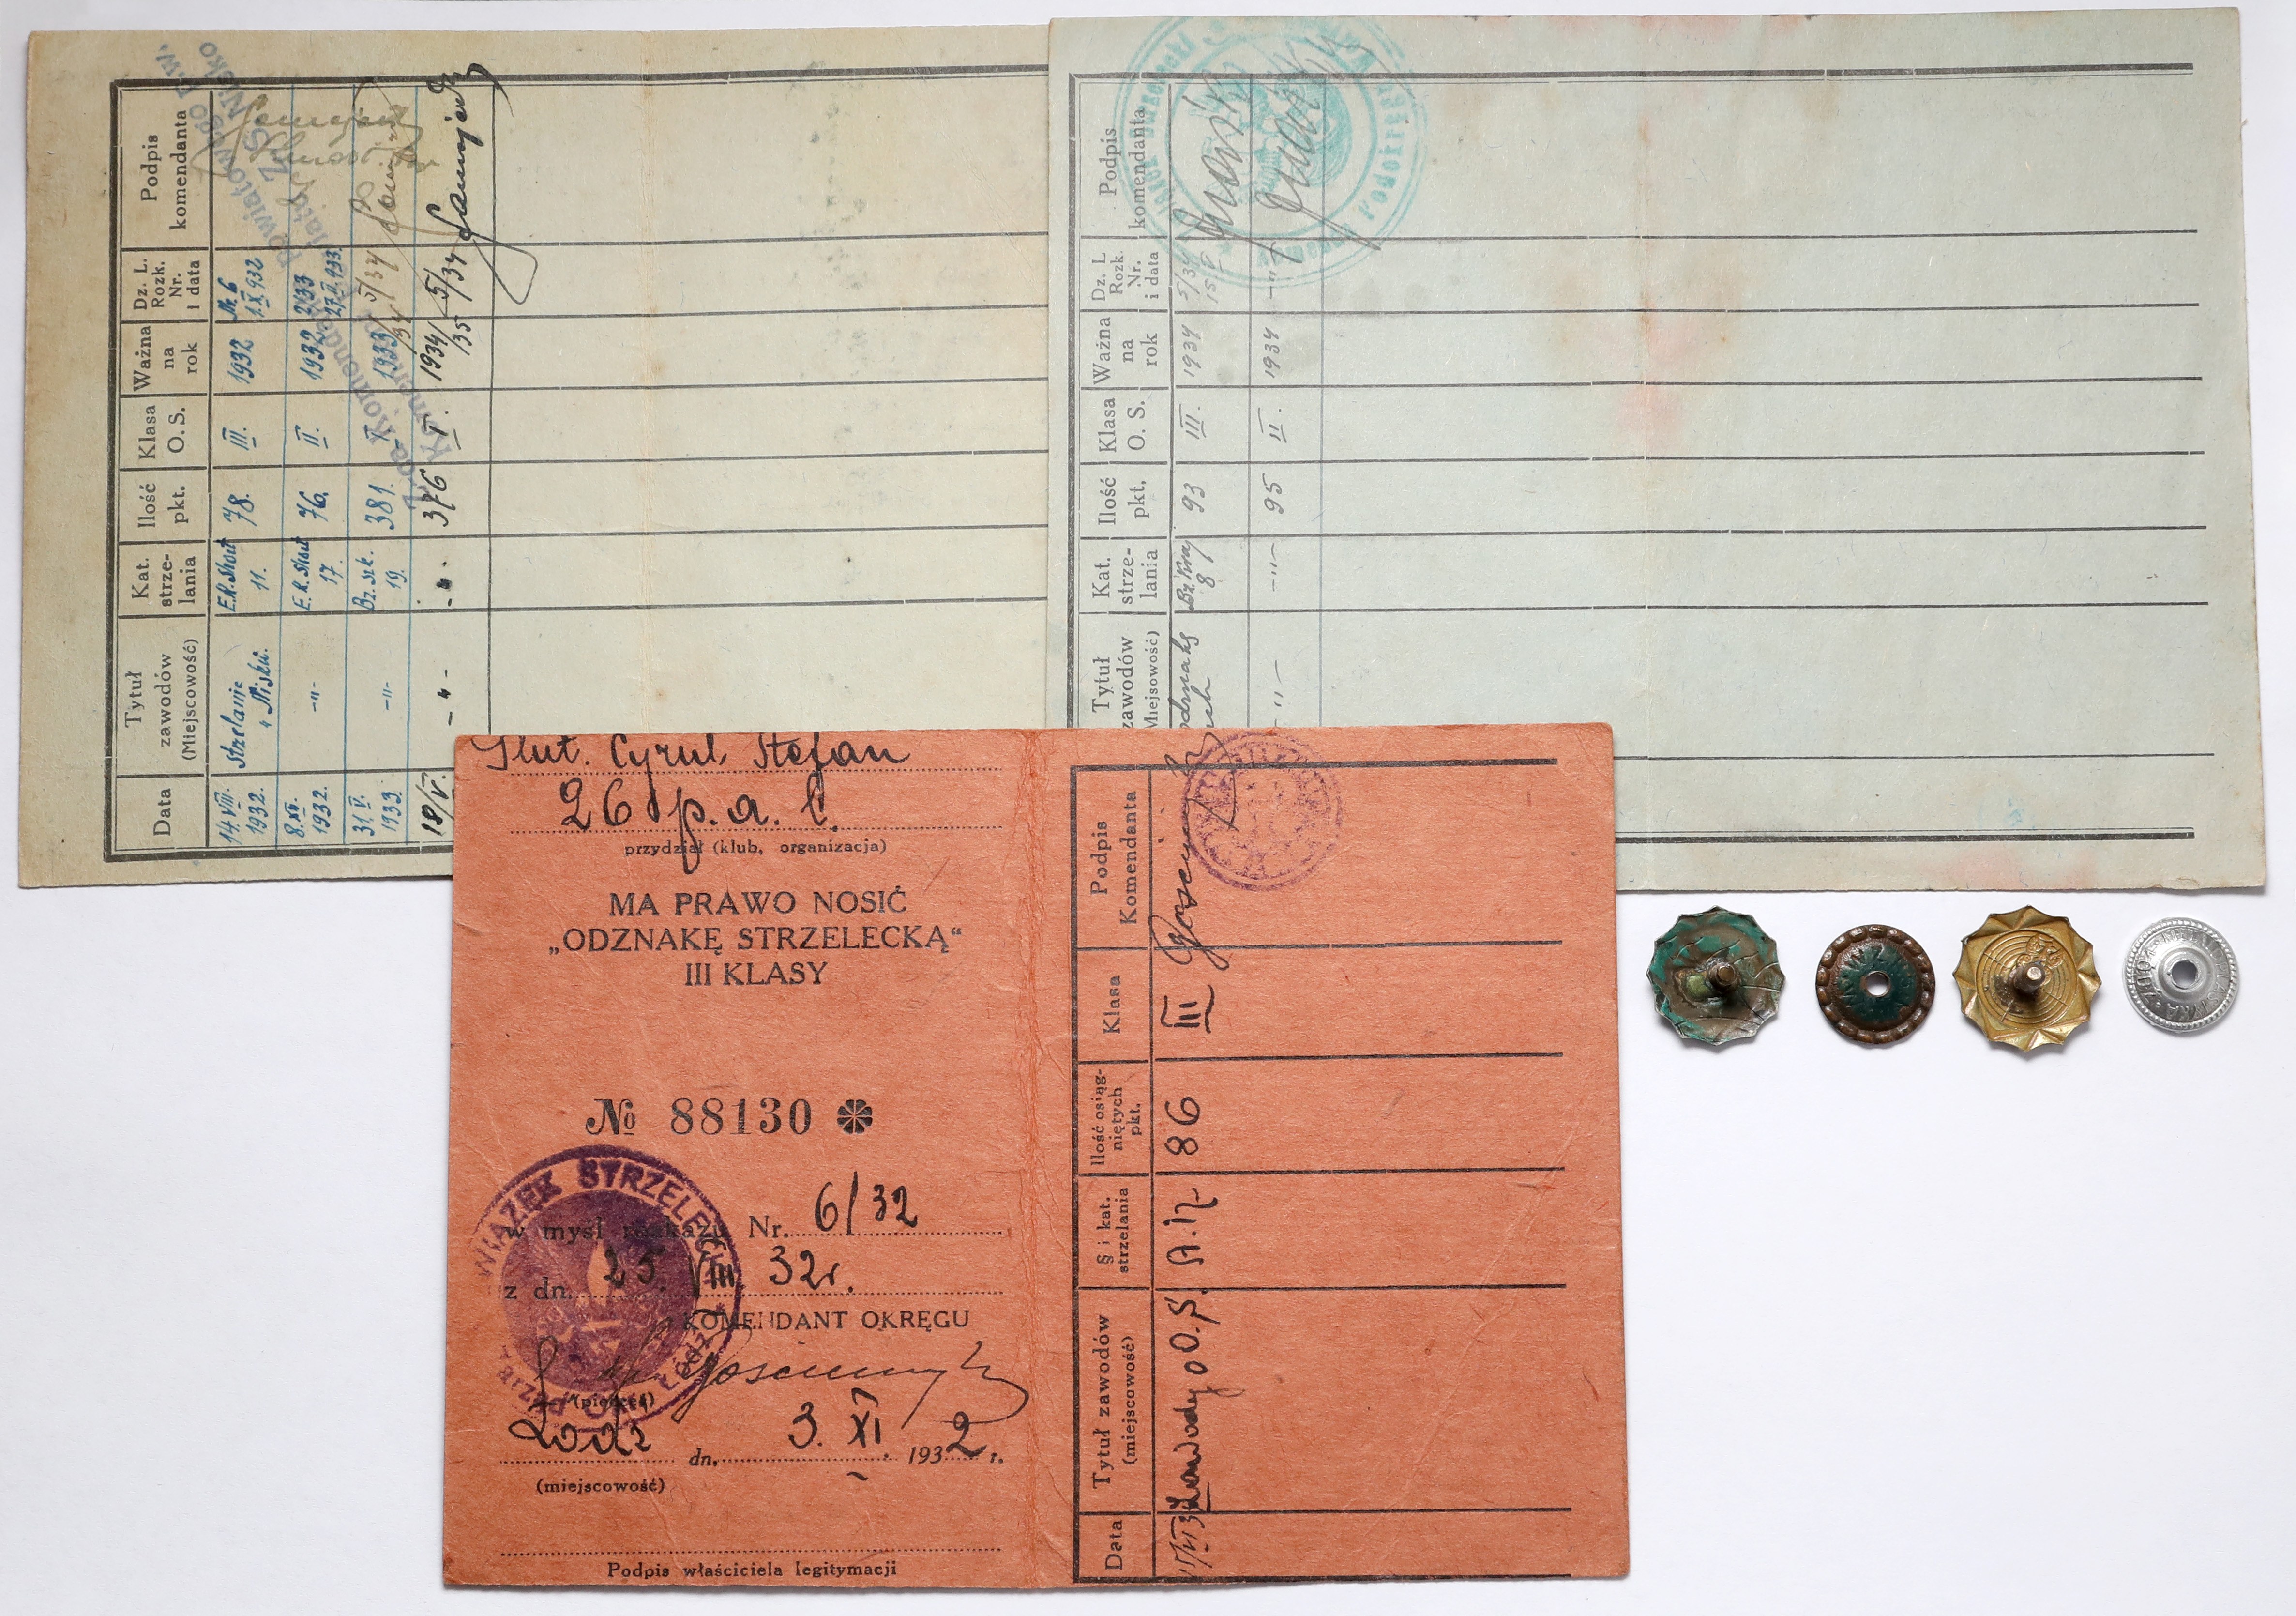 Data
Tytuł
zawodów
(Miejscowość)
Kat.
strze-
lania
Ilość
pkt.
Klasa
O. S.
Ważna
na
rok
Dz. L.
Rozk.
Nr.
i data
Podpis
komendanta
14.VIII.
1932.
Strzelanie
Nisku.
11.
78.
III.
1932
Nr. 6
1.X.932
8.XII.
1932.
-"-
17.
76.
II.
1932
2/33
27.II.933.
31.V.
1933.
-"-
Bz. szk.
19.
381.
I
1933
/34
5/34
18/V.
-"-
-"-
376
I.
1934/
/35
5/34
Powiatowego
Z.S. Nisko
Tytuł
zawodów
Miejsowość)
Kat.
strze-
lania
Ilość
pkt,
Klasa
O. S.
Ważna
na
rok
Dz. L
Rozk.
Nr.
i data
Podpis
komendanta
8
93
III.
1934
5/34
15
-"-
-"-
95
II.
1934
-"-
Plut. Cyrul Stefan
26 p. a. l.
przydział (klub, organizacja)
MA PRAWO NOSIĆ
„ODZNAKĘ STRZELECKĄ“
III KLASY
№ 88130
w myśl rozkazu Nr. 6/32
z dn. 25. VIII. 32r.
KOMENDANT OKRĘGU
(pieczęć)
Łódź dn. 3. XI. 1932 r.
(miejscowość)
Podpis właściciela legitymacji
ZWIĄZEK STRZELECKI
Data
Tytuł zawodów
(miejscowość)
§ i kat.
strzelania
Ilość osiąg-
niętych
pkt.
Klasa
Podpis
Komendanta
Zawody o O.S.
A. 17
86
III